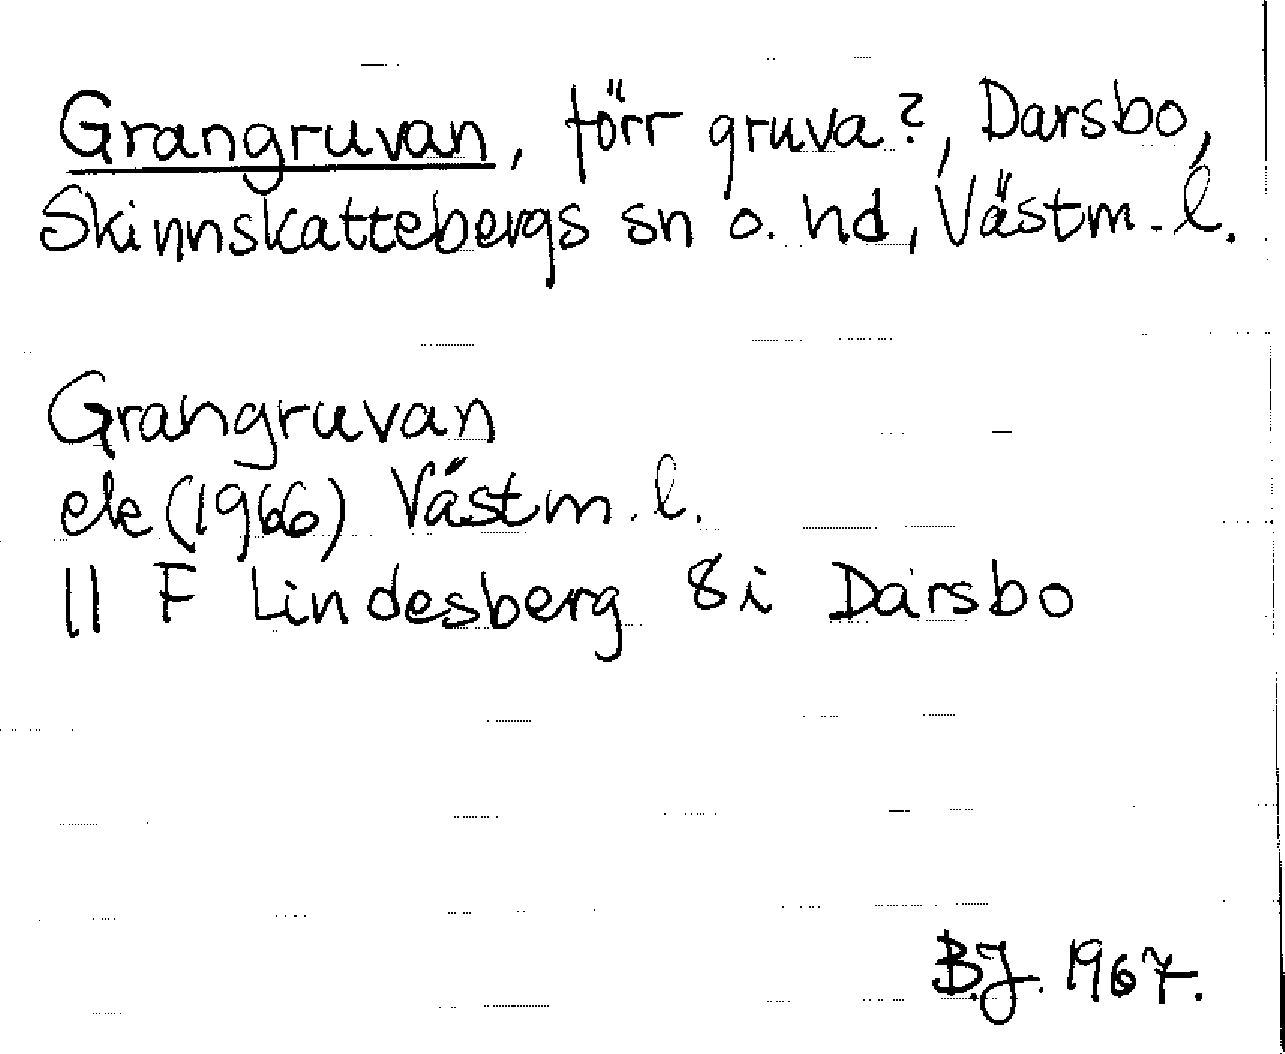 Grangruvan, förr gruva?, Darsbo,
Skinnskattebergs sn o. hd, Västm. l.
Grangruvan
ek (1966) Västm. l.
11 F Lindesberg 8i Darsbo
B.J. 1967.